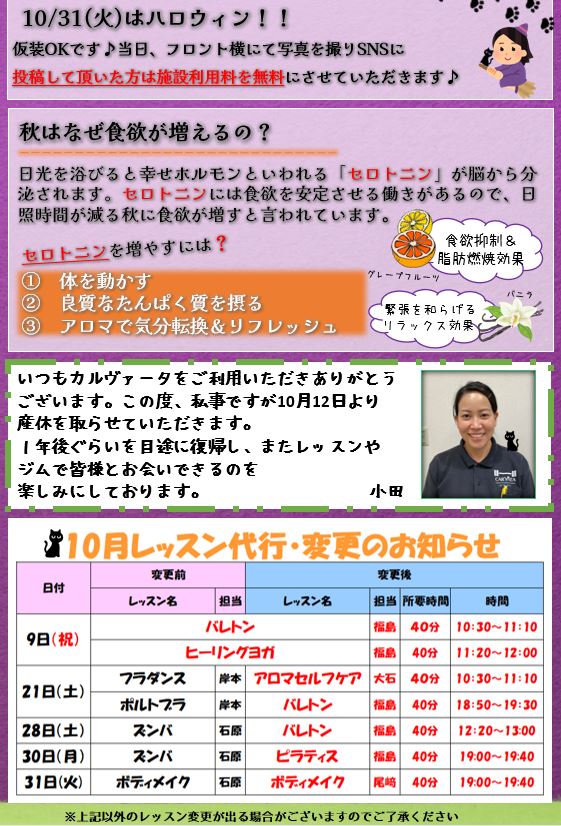 10/31(火)はハロウィン！！
仮装OKです♪当日、フロント横にて写真を撮りSNSに
投稿して頂いた方は施設利用料を無料にさせていただきます♪
秋はなぜ食欲が増えるの？
日光を浴びると幸せホルモンといわれる「セロトニン」が脳から分
泌されます。セロトニンには食欲を安定させる働きがあるので、日
照時間が減る秋に食欲が増すと言われています。
セロトニンを増やすには？
① 体を動かす
② 良質なたんぱく質を摂る
③ アロマで気分転換＆リフレッシュ
食欲抑制＆
脂肪燃焼効果
グレープフルーツ
バニラ
緊張を和らげる
リラックス効果
いつもカルヴァータをご利用いただきありがとう
ございます。この度、私事ですが10月12日より
産休を取らせていただきます。
１年後ぐらいを目途に復帰し、またレッスンや
ジムで皆様とお会いできるのを
楽しみにしております。 小田
10月レッスン代行・変更のお知らせ
日付 変更前 変更後
レッスン名 担当 レッスン名 担当 所要時間 時間
9日(祝) バレトン 福島 40分 10:30～11:10
ヒーリングヨガ 福島 40分 11:20～12:00
21日(土) フラダンス 岸本 アロマセルフケア 大石 40分 10:30～11:10
ポルトブラ 岸本 バレトン 福島 40分 18:50～19:30
28日(土) ズンバ 石原 バレトン 福島 40分 12:20～13:00
30日(月) ズンバ 石原 ピラティス 福島 40分 19:00～19:40
31日(火) ボディメイク 石原 ボディメイク 尾﨑 40分 19:00～19:40
※上記以外のレッスン変更が出る場合がございますのでご了承ください